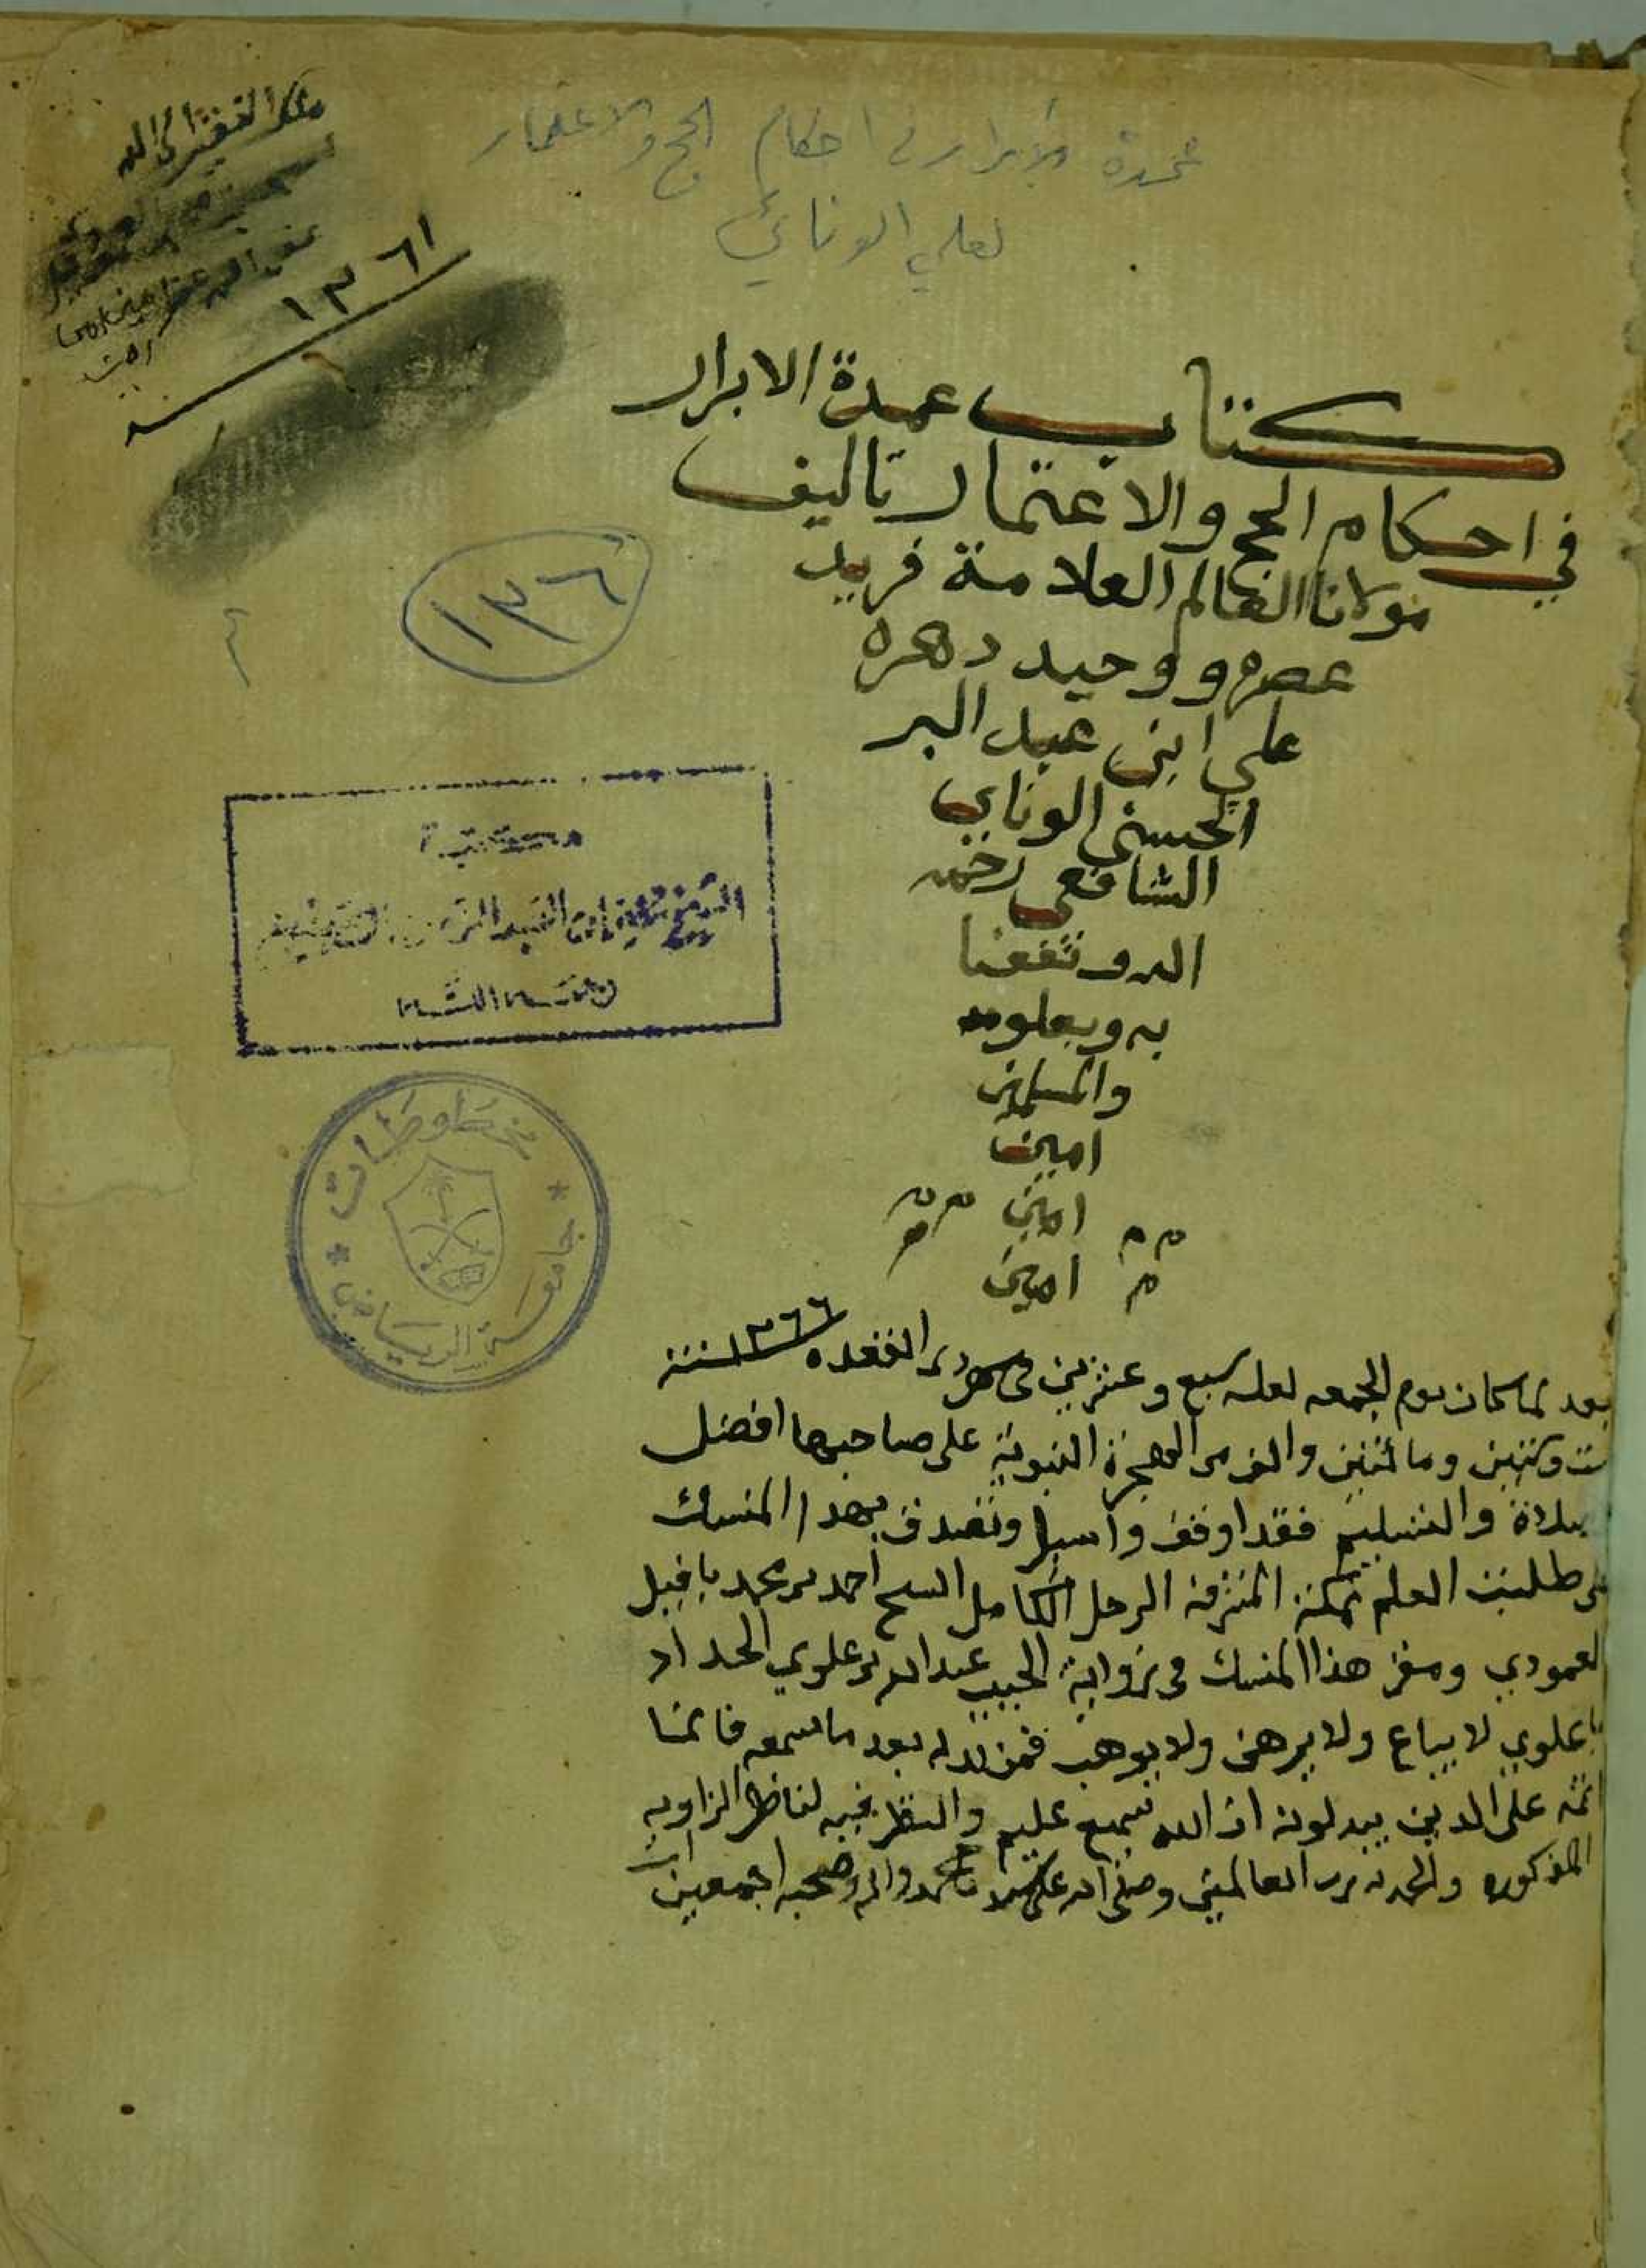 ملك الفقير الى الله
١٣٦١
عمدة الأبرار في احكام الحج والاعتمار
لعلي الونائي
كتاب عمدة الابرار
في احكام الحج والاعتمار تاليف
مولانا العالم العلامة فريد
عصره ووحيد دهره
علي ابن عبد البر
الحسني الوناي
الشافعي رحمه
الله ونفعنا
به وبعلومه
والمسلمين
امين
امين
امين
١٣٦
مكتبة
مخطوطات
جامعة الرياض
بعد لما كان يوم الجمعه لعله سبع وعشرين في شهر القعده ١٢٦٦ سنة
ست وستين ومائتين والف من الهجرة النبوية على صاحبها افضل
الصلاة والتسليم فقد اوقف واسبل وتصدق بهذا المنسك
على طلبت العلم بمكة المشرفة الرجل الكامل الشيخ احمد بن محمد باقبيل
العمودي ومقر هذا المنسك في زواية الحبيب عبد الله بن علوي الحداد
باعلوي لا يباع ولا يرهن ولا يوهب فمن بدله بعد ما سمعه فانما
اثمه على الدين يبدلونه ان الله سميع عليم والنظر فيه لناظر الزاويه
المذكوره والحمد لله رب العالمين وصلى الله على سيدنا محمد واله وصحبه اجمعين امين